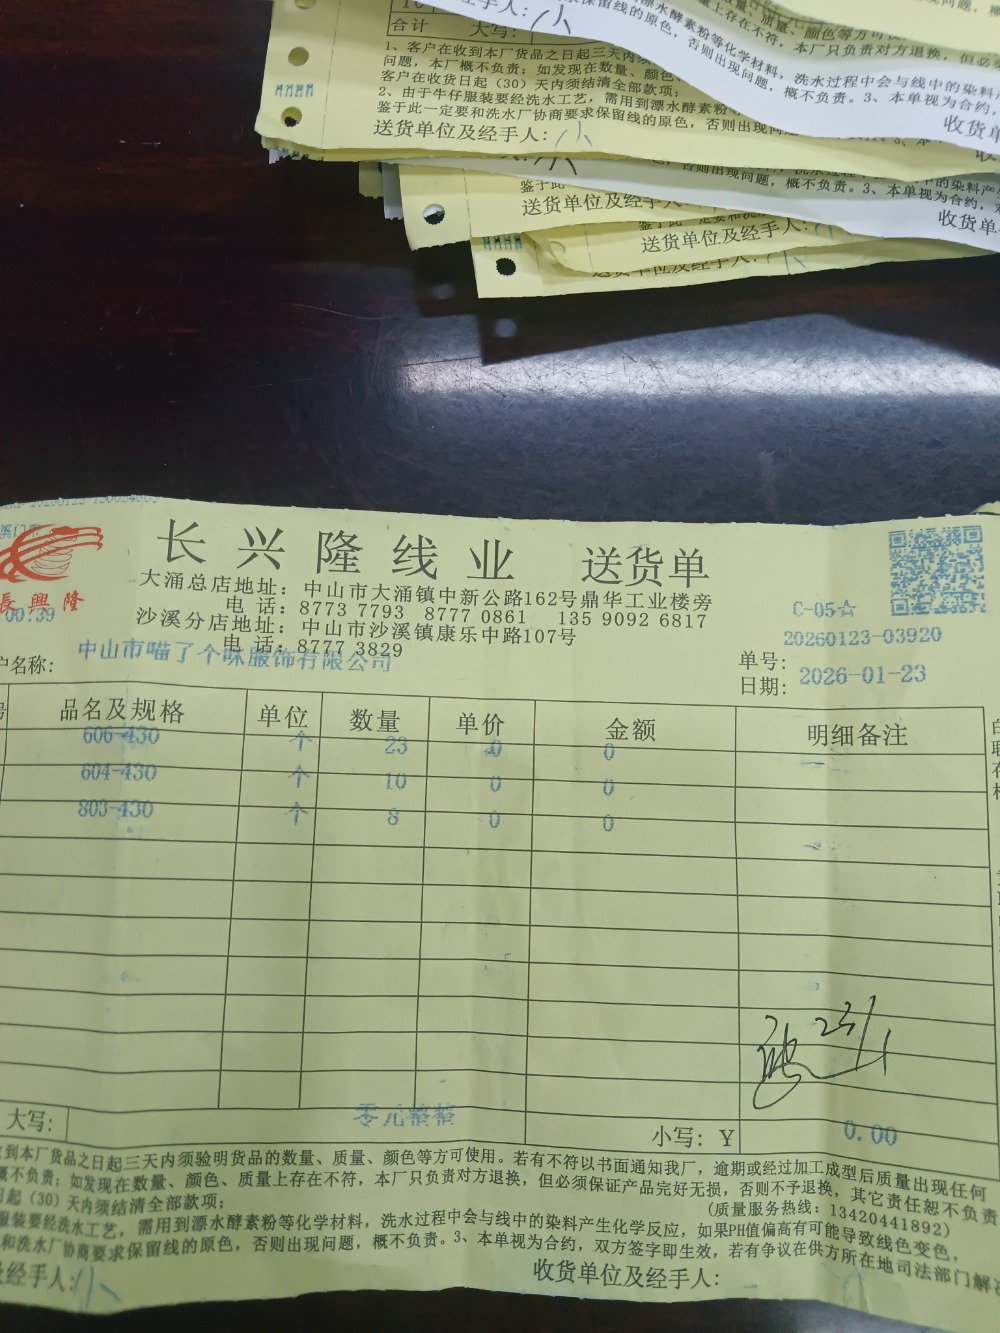 合计 大写:
1、客户在收到本厂货品之日起三天内须
问题，本厂概不负责；如发现在数量、颜色、
客户在收货日起（30）天内须结清全部款项；
2、由于牛仔服装要经洗水工艺，需用到漂水酵素粉
鉴于此一定要和洗水厂协商要求保留线的原色，否则出现问
送货单位及经手人: 小
保留线的原色，否则出现问题，概不负责。3、本单视为合约，
收货单
送货单位及经手人
收货单
送货单位及经手人:
長興隆
长兴隆线业 送货单
大涌总店地址：中山市大涌镇中新公路162号鼎华工业楼旁
电 话：8773 7793 8777 0861 135 9092 6817
沙溪分店地址：中山市沙溪镇康乐中路107号
电 话：8777 3829
00:39
C-05☆
户名称: 中山市喵了个咪服饰有限公司
单号: 20260123-03920
日期: 2026-01-23
品名及规格 单位 数量 单价 金额 明细备注
606-430 个 23 0 0
604-430 个 10 0 0
803-430 个 8 0 0
23/1
大写: 零元整整 小写: Y 0.00
到本厂货品之日起三天内须验明货品的数量、质量、颜色等方可使用。若有不符以书面通知我厂，逾期或经过加工成型后质量出现任何
概不负责；如发现在数量、颜色、质量上存在不符，本厂只负责对方退换，但必须保证产品完好无损，否则不予退换，其它责任恕不负责
日起（30）天内须结清全部款项； （质量服务热线：13420441892）
服装要经洗水工艺，需用到漂水酵素粉等化学材料，洗水过程中会与线中的染料产生化学反应，如果PH值偏高有可能导致线色变色，
和洗水厂协商要求保留线的原色，否则出现问题，概不负责。3、本单视为合约，双方签字即生效，若有争议在供方所在地司法部门解决
及经手人: 小 收货单位及经手人: